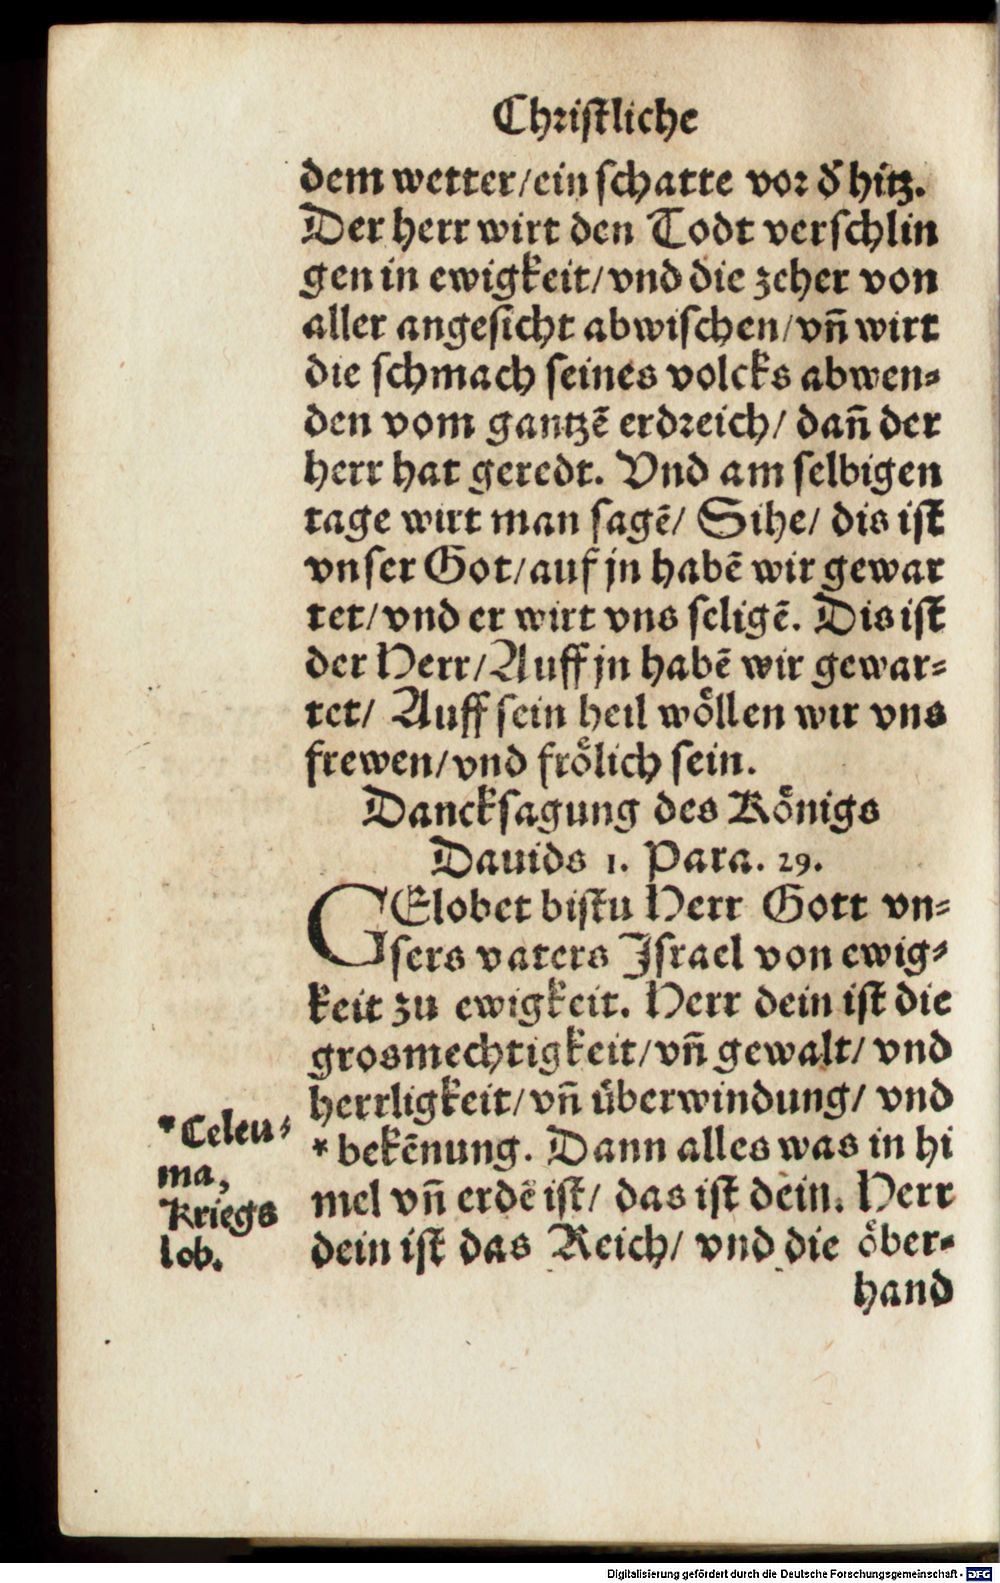 Christliche
dem wetter/ein schatte vor d̕ hitz.
Der herr wirt den Todt verschlin
gen in ewigkeit/vnd die zeher von
aller angesicht abwischen/vñ wirt
die schmach seines volcks abwen⸗
den vom gantzē erdreich/ dañ der
herr hat geredt. Vnd am selbigen
tage wirt man sagē/ Sihe/ dis ist
vnser Got/auf jn habē wir gewar
tet/vnd er wirt vns seligē. Dis ist
der Herr/Auff jn habē wir gewar⸗
tet/ Auff sein heil woͤllen wir vns
frewen/vnd froͤlich sein.
Dancksagung des Koͤnigs
Dauids 1. Para. 29.
GElobet bistu Herr Gott vn⸗
sers vaters Israel von ewig⸗
keit zu ewigkeit. Herr dein ist die
grosmechtigkeit/vñ gewalt/ vnd
herrligkeit/vñ uͤberwindung/ vnd
*bekēnung. Dann alles was in hi
mel vñ erdē ist/ das ist dein. Herr
dein ist das Reich/ vnd die oͤber⸗
hand
*Celeu⸗
ma,
Kriegs
lob.
Digitalisierung gefördert durch die Deutsche Forschungsgemeinschaft - DFG